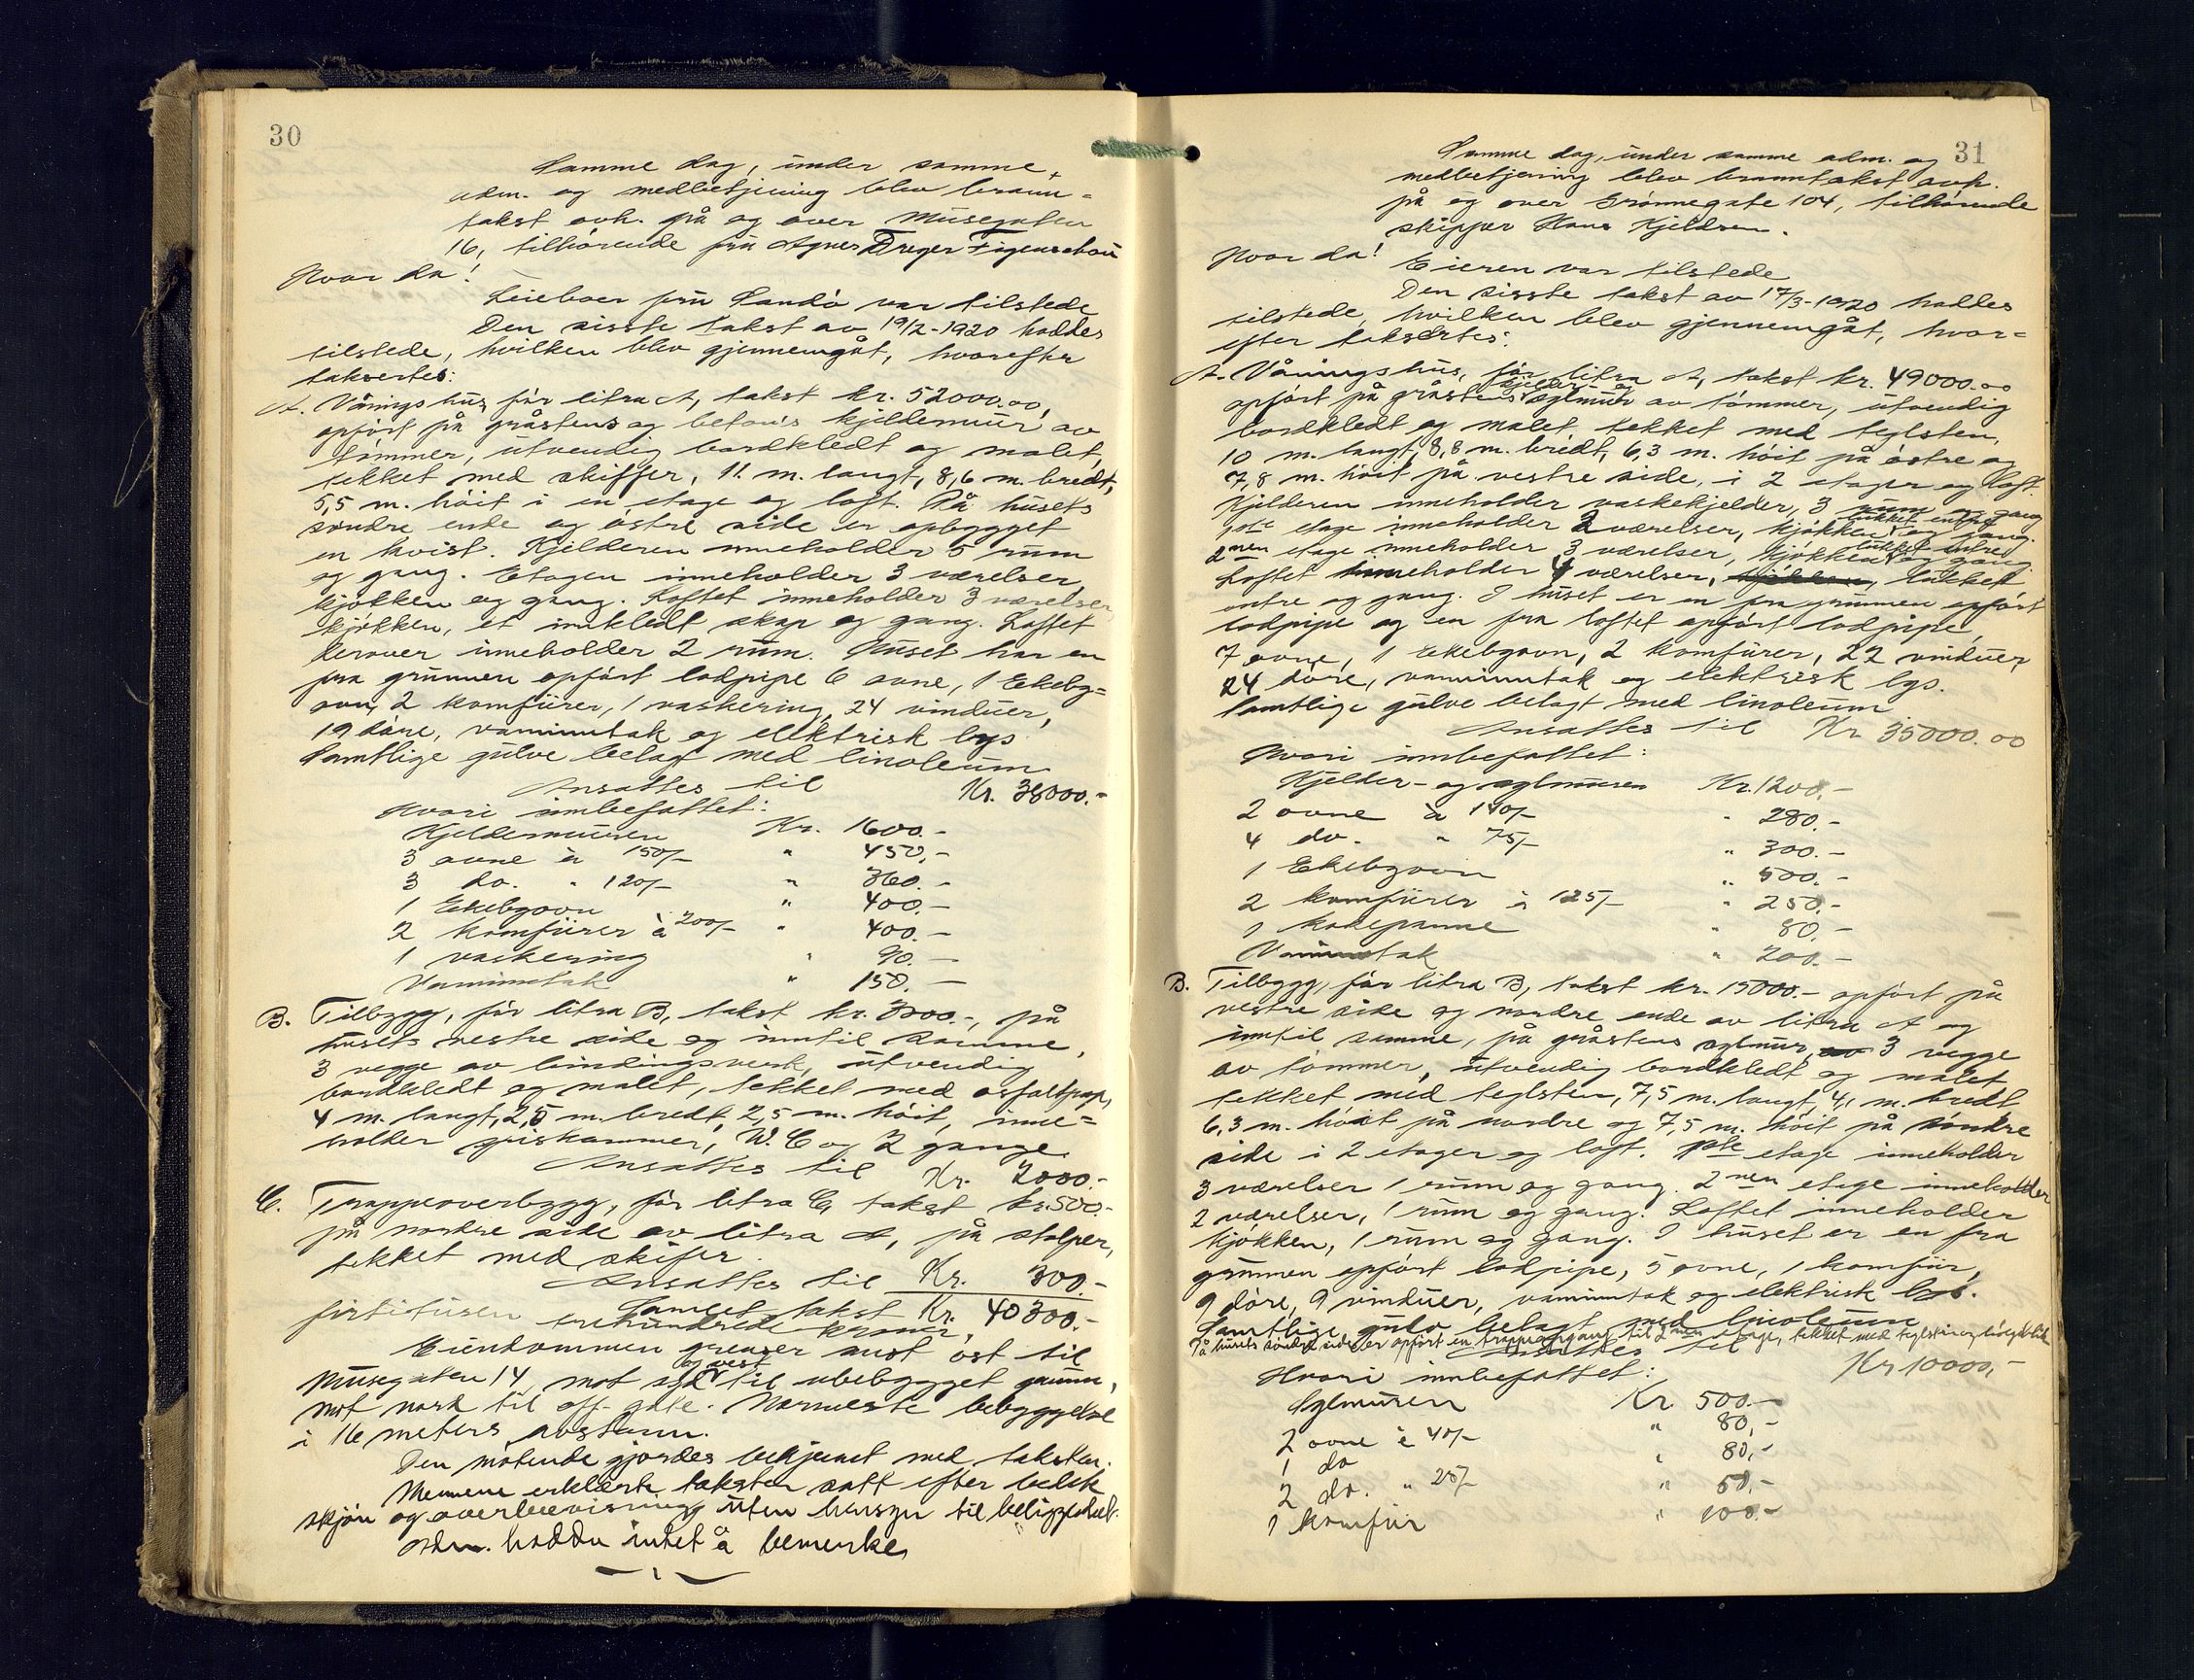 30
Samme dag, under samme
adm. og medbetjening blev brann=
takst avh. på og over Musegaten
16, tilhörende fru Agnes Dreyer Figenschou
Hvor da!
Leieboer fru Sandö var tilstede
Den sisste takst av 19/2-1920 haddes
tilstede, hvilken blev gjennemgåt, hvorefter
taksertes:
A. Våningshus, för litra A, takst kr. 52000.00,
opfört på gråstens og betons kjeldemuur av
tömmer, utvendig bordkledt og malet,
tekket med skiffer, 11. m. langt, 8,6 m. bredt,
5,5 m. höit i en etage og loft. På husets
söndre ende og östre side er opbygget
en kvist. Kjelderen inneholder 5 rum
og gang. Etagen inneholder 3 værelser,
kjökken og gang. Loftet inneholder 3 værelser,
kjökken, et innkledt skap og gang. Loftet
derover inneholder 2 rum. Huset har en
fra grunnen opfört lodpipe 6 ovne, 1 Ekeby=
ovn, 2 komfürer, 1 vaskering, 24 vinduer,
19 döre, vanninntak og elektrisk lys
Samtlige gulve belagt med linoleum
Ansattes til Kr. 38000.-
Hvori innbefattet:
Kjeldermuren Kr. 1600.-
3 ovne à 150/- " 450,-
3 do. " 120/- " 360.-
1 Ekebyovn " 400.-
2 komfürer à 200/- " 400.-
1 vaskering " 90.-
Vanninntak " 150.-
B. Tilbygg, för litra B, takst kr. 3000.-, på
husets vestre side og inntil samme,
3 vegge av bindingsverk, utvendig
bordkledt og malet, tekket med asfaltpap,
4 m. langt, 2,5 m. bredt, 2,5 m. höit, inne=
holder spiskammer, W. C og 2 gange
Ansattes til Kr. 2000.-
C. Trappeoverbygg, för litra C, takst kr. 500.-
på nordre side av litra A, på stolper,
tekket med skifer.
Ansattes til Kr. 300.-
Samlet takst Kr. 40300.-
firtitusen trehundrede kroner,
Eiendommen grenser mot öst til
Musegaten 14, mot syd og vest til ubebygget grunn,
mot nord til off. gate. Nærmeste bebyggelse
i 16 meters avstann.
Den mötende gjordes bekjennt med taksten.
Mennene erklærte taksten satt efter bedste
skjön og overbevisning uten hensyn til beliggenhet.
Adm. hadde intet å bemerke
31
Samme dag, under samme adm. og
medbetjening blev branntakst avh.
på og over Grönnegate 104, tilhörende
skipper Hans Kjeldsen.
Hvor da!
Eieren var tilstede
Den sisste takst av 17/3-1920 haddes
tilstede, hvilken blev gjennemgåt, hvor=
efter taksertes:
A. Våningshus, för litra A, takst kr. 49000.00
opfört på gråstens kjelder- og sylmur av tömmer, utvendig
bordkledt og malet, tekket med teglsten,
10 m. langt, 8,8 m. bredt, 6,3 m. höit på östre og
7,8 m. höit på vestre side, i 2 etager og loft.
Kjelderen inneholder vaskekjelder, 3 rum og gang
1ste etage inneholder 2 værelser, kjökken, lukket entre og gang.
2nen etage inneholder 3 værelser, kjökken, lukket entre og gang.
Loftet inneholder 4 værelser, lukket
entre og gang. I huset er en fra grunnen opfört
lodpipe og en fra loftet opfört lodpipe,
7 ovne, 1 Ekebyovn, 2 komfürer, 22 vinduer,
24 döre, vanninntak og elektrisk lys.
Samtlige gulve belagt med linoleum
Ansattes til Kr 35000.00
Hvori innbefattet:
Kjelder- og sylmuren Kr. 1200.-
2 ovne à 140/- " 280.-
4 do. " 75/- " 300.-
1 Ekebyovn " 500.-
2 komfürer à 125/- " 250.-
1 kokepanne " 80.-
Vanninntak " 200.-
B. Tilbygg, för litra B, takst kr. 15000.- opfört på
vestre side og nordre ende av litra A og
inntil samme, på gråstens sylmur, 3 vegge
av tömmer, utvendig bordkledt og malet,
tekket med teglsten, 7,5 m. langt, 4,1 m. bredt
6,3 m. höit på nordre og 7,5 m. höit på söndre
side i 2 etager og loft. 1ste etage inneholder
3 værelser 1 rum og gang. 2nen etage inneholder
2 værelser, 1 rum og gang. Loftet inneholder
kjökken, 1 rum og gang. I huset er en fra
grunnen opfört lodpipe, 5 ovne, 1 komfür,
9 döre, 9 vinduer, vanninntak og elektrisk lys.
Samtlige gulv belagt med linoleum
På husets söndre side er opfört en trappeopgang til 2nen etage, tekket med teglsten og
Ansattes til Kr 10000,-
Hvori innbefattet:
Sylmuren Kr. 500.-
2 ovne à 40/- " 80,-
1 do " 80,-
2 do. " 25/- " 50,-
1 komfür " 100.-